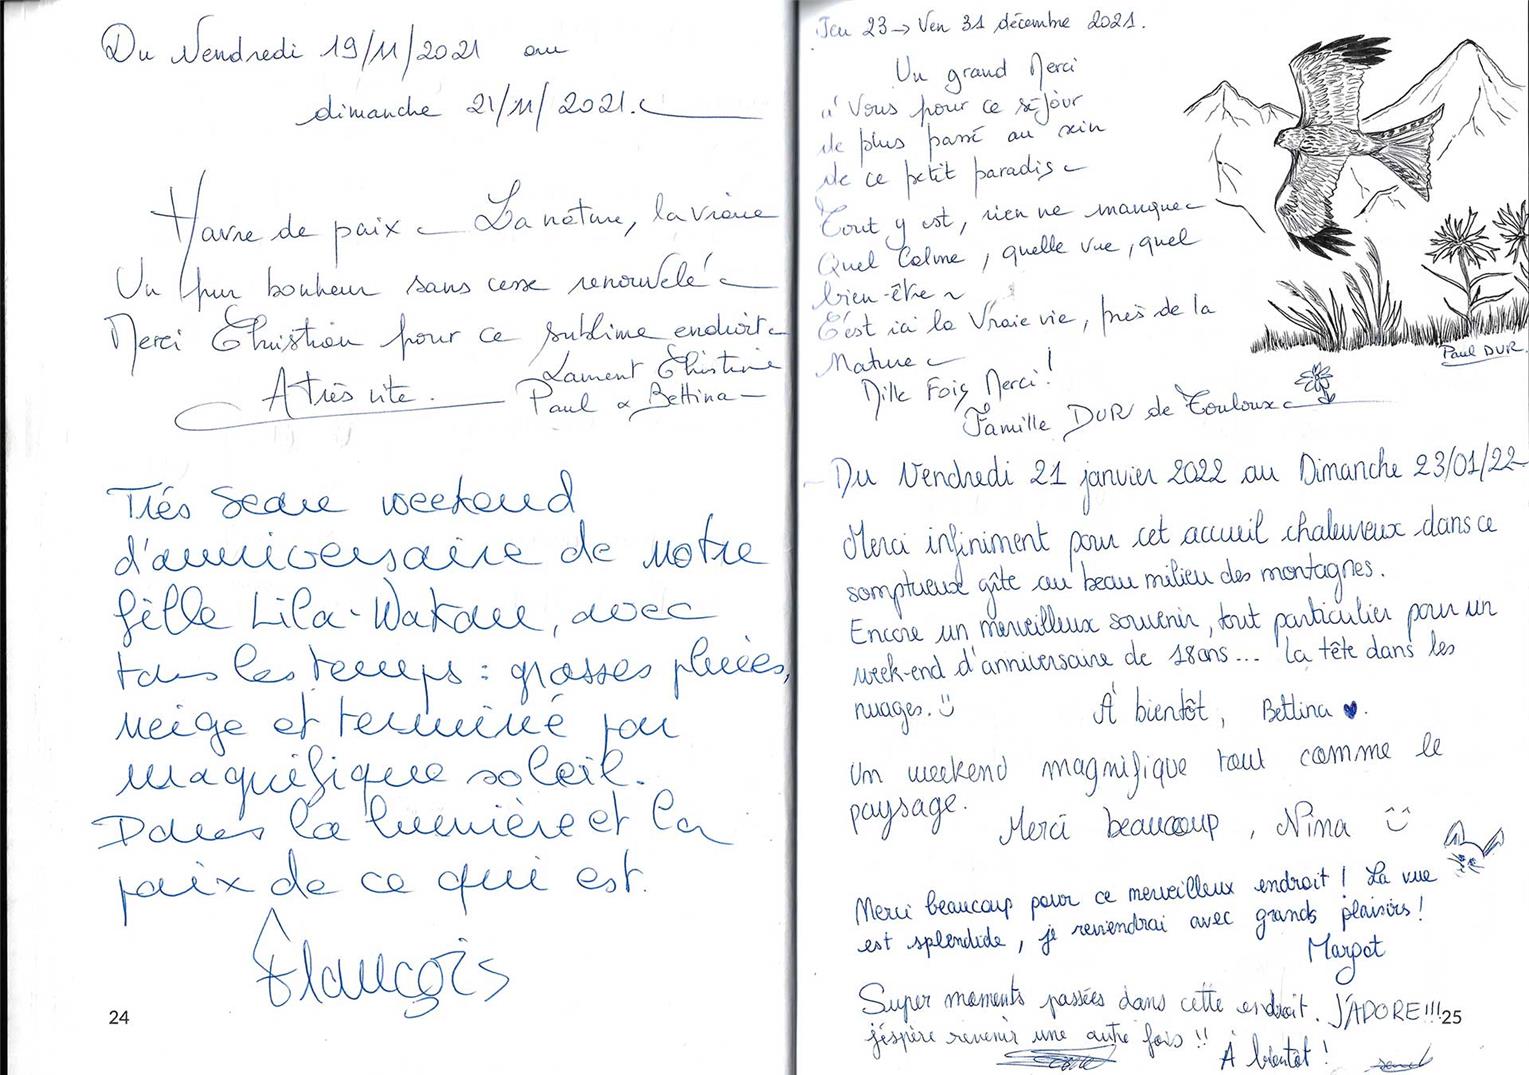 Du Vendredi 19/11/2021 au
dimanche 21/11/2021.
Havre de paix La nature, la vraie
Un pur bonheur sans cesse renouvelé
Merci Christian pour ce sublime endroit
A très vite.
Laurent Christine
Paul & Bettina
Très beau weekend
d'anniversaire de notre
fille Lila-Wakan, avec
tous les temps : grosses pluies,
neige et terminé par
magnifique soleil.
Dans la lumière et la
paix de ce qui est.
François
24
Jeu 23 → Ven 31 décembre 2021.
Un grand Merci
à Vous pour ce séjour
de plus passé au sein
de ce petit paradis
Tout y est, rien ne manque
Quel Calme, quelle vue, quel
bien-être
C'est ici la Vraie vie, près de la
Nature
Mille Fois Merci !
Famille DUR de Toulouse
Paul DUR.
Du Vendredi 21 janvier 2022 au Dimanche 23/01/22
Merci infiniment pour cet accueil chaleureux dans ce
somptueux gîte au beau milieu des montagnes.
Encore un merveilleux souvenir, tout particulier pour un
week-end d'anniversaire de 18ans... la tête dans les
nuages. :)
À bientôt, Bettina ♥.
Un weekend magnifique tout comme le
paysage.
Merci beaucoup, Nina :)
Merci beaucoup pour ce merveilleux endroit ! La vue
est splendide, je reviendrai avec grands plaisirs !
Margot
Super moments passées dans cette endroit. J'ADORE!!!
j'éspère revenir une autre fois !!
À bientôt !
25